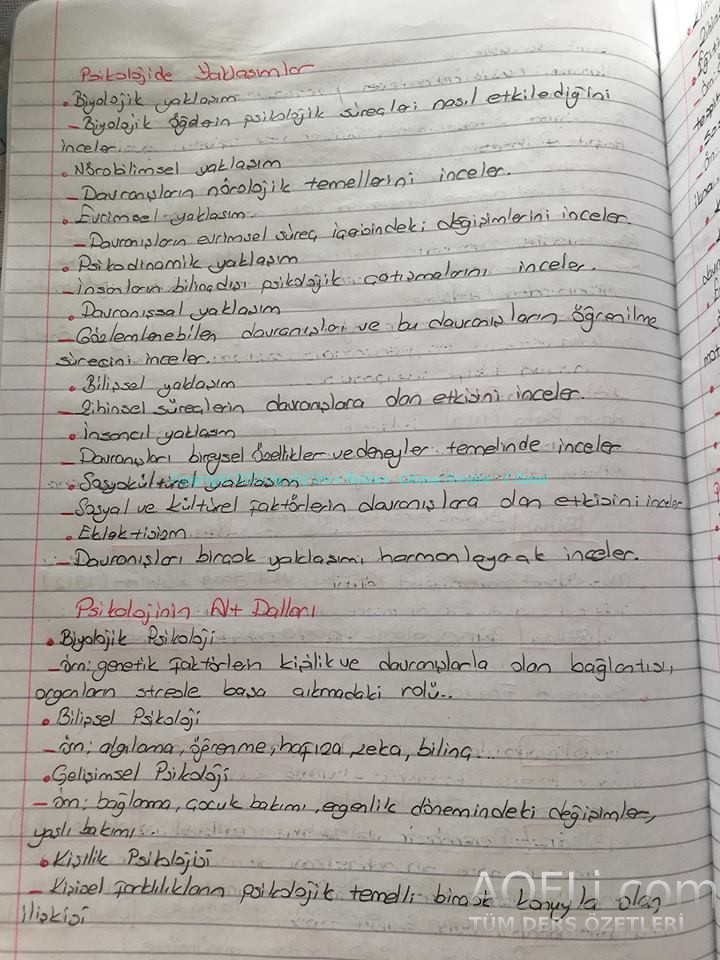 Psikolojide Yaklaşımlar
• Biyolojik yaklaşım
– Biyolojik öğelerin psikolojik süreçleri nasıl etkilediğini
inceler.
• Nörobilimsel yaklaşım
– Davranışların nörolojik temellerini inceler.
• Evrimsel yaklaşım
– Davranışların evrimsel süreç içerisindeki değişimlerini inceler.
• Psikodinamik yaklaşım
– İnsanların bilinçdışı psikolojik çatışmalarını inceler.
• Davranışsal yaklaşım
– Gözlemlenebilen davranışları ve bu davranışların öğrenilme
sürecini inceler.
• Bilişsel yaklaşım
– Zihinsel süreçlerin davranışlara olan etkisini inceler.
• İnsancıl yaklaşım
– Davranışları bireysel özellikler ve deneyler temelinde inceler
• Sosyokültürel yaklaşım
– Sosyal ve kültürel faktörlerin davranışlara olan etkisini inceler
• Eklektisizm
– Davranışları birçok yaklaşımı harmanlayarak inceler.
Psikolojinin Alt Dalları
• Biyolojik Psikoloji
– örn; genetik faktörlerin kişilik ve davranışlarla olan bağlantısı,
organların stresle başa çıkmadaki rolü..
• Bilişsel Psikoloji
– örn; algılama, öğrenme, hafıza, zeka, bilinç...
• Gelişimsel Psikoloji
– örn; bağlanma, çocuk bakımı, ergenlik dönemindeki değişimler,
yaşlı bakımı...
• Kişilik Psikolojisi
– Kişisel farklılıkların psikolojik temelli birçok konuyla olan
ilişkisi
AOFLi.com
TÜM DERS ÖZETLERİ